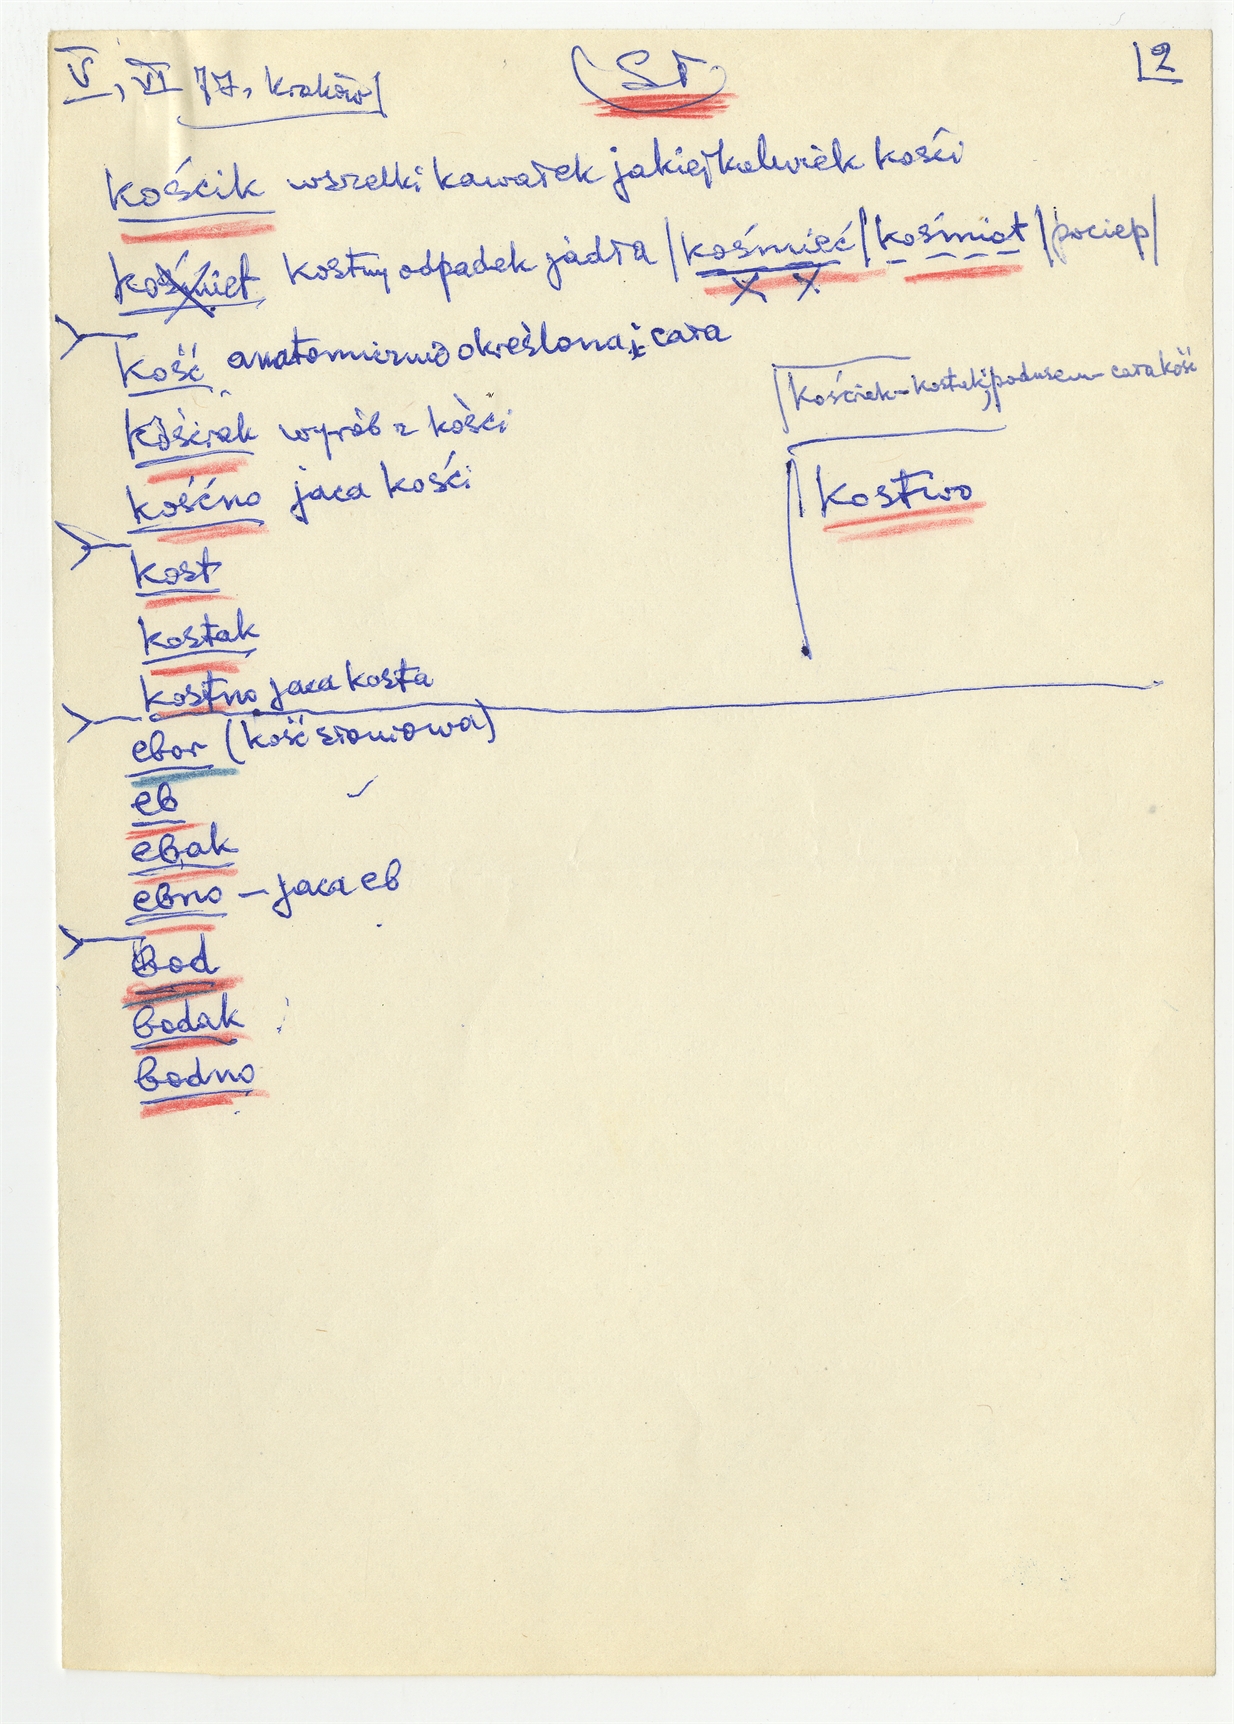 V, VI 77, Kraków
(SŁ)
2
kościk wszelki kawałek jakiejkolwiek kości
kośmiet kostny odpadek jadła / kośmieć / kośmiot / pociep /
kość anatomicznie określona i cała
kościak wyrób z kości
kośćno jaca kości
kost
kostak
kostno jaca kosta
kostwo
ebor (kość słoniowa)
eb
ebak
ebno – jaca eb
bod
bodak
bodno